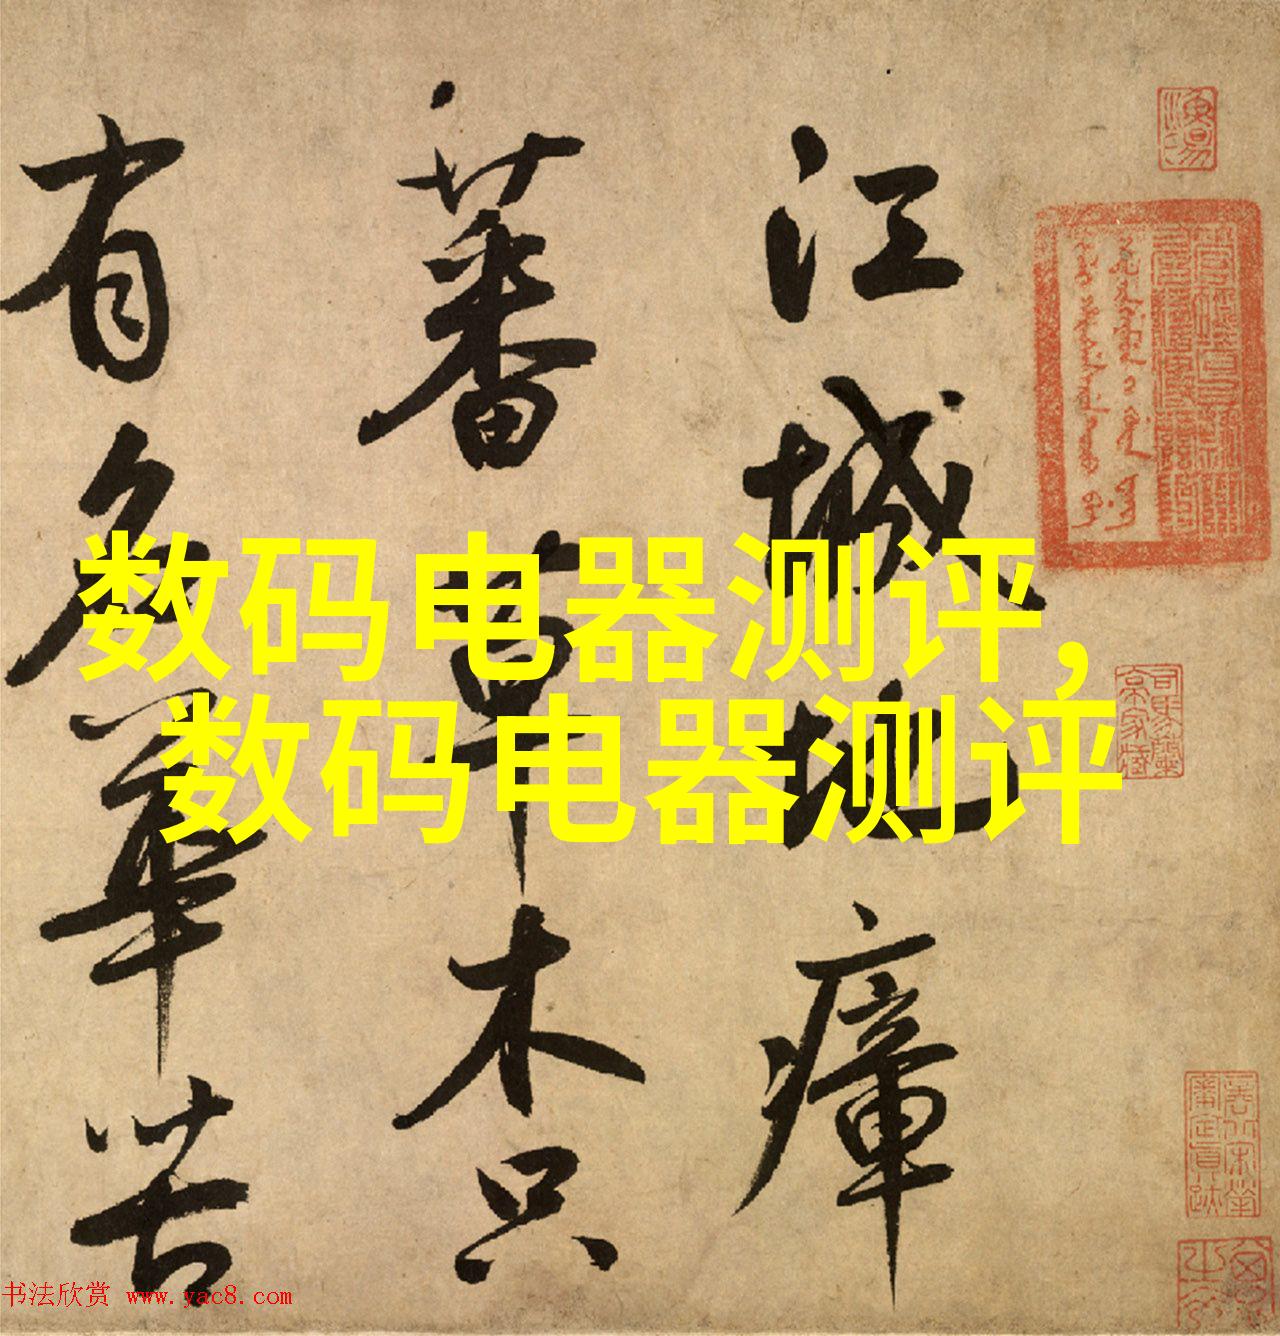 江城地瘴
蕃草木只
有名華苦
数码电器测评,
数码电器测评
书法欣赏 www.yac8.com